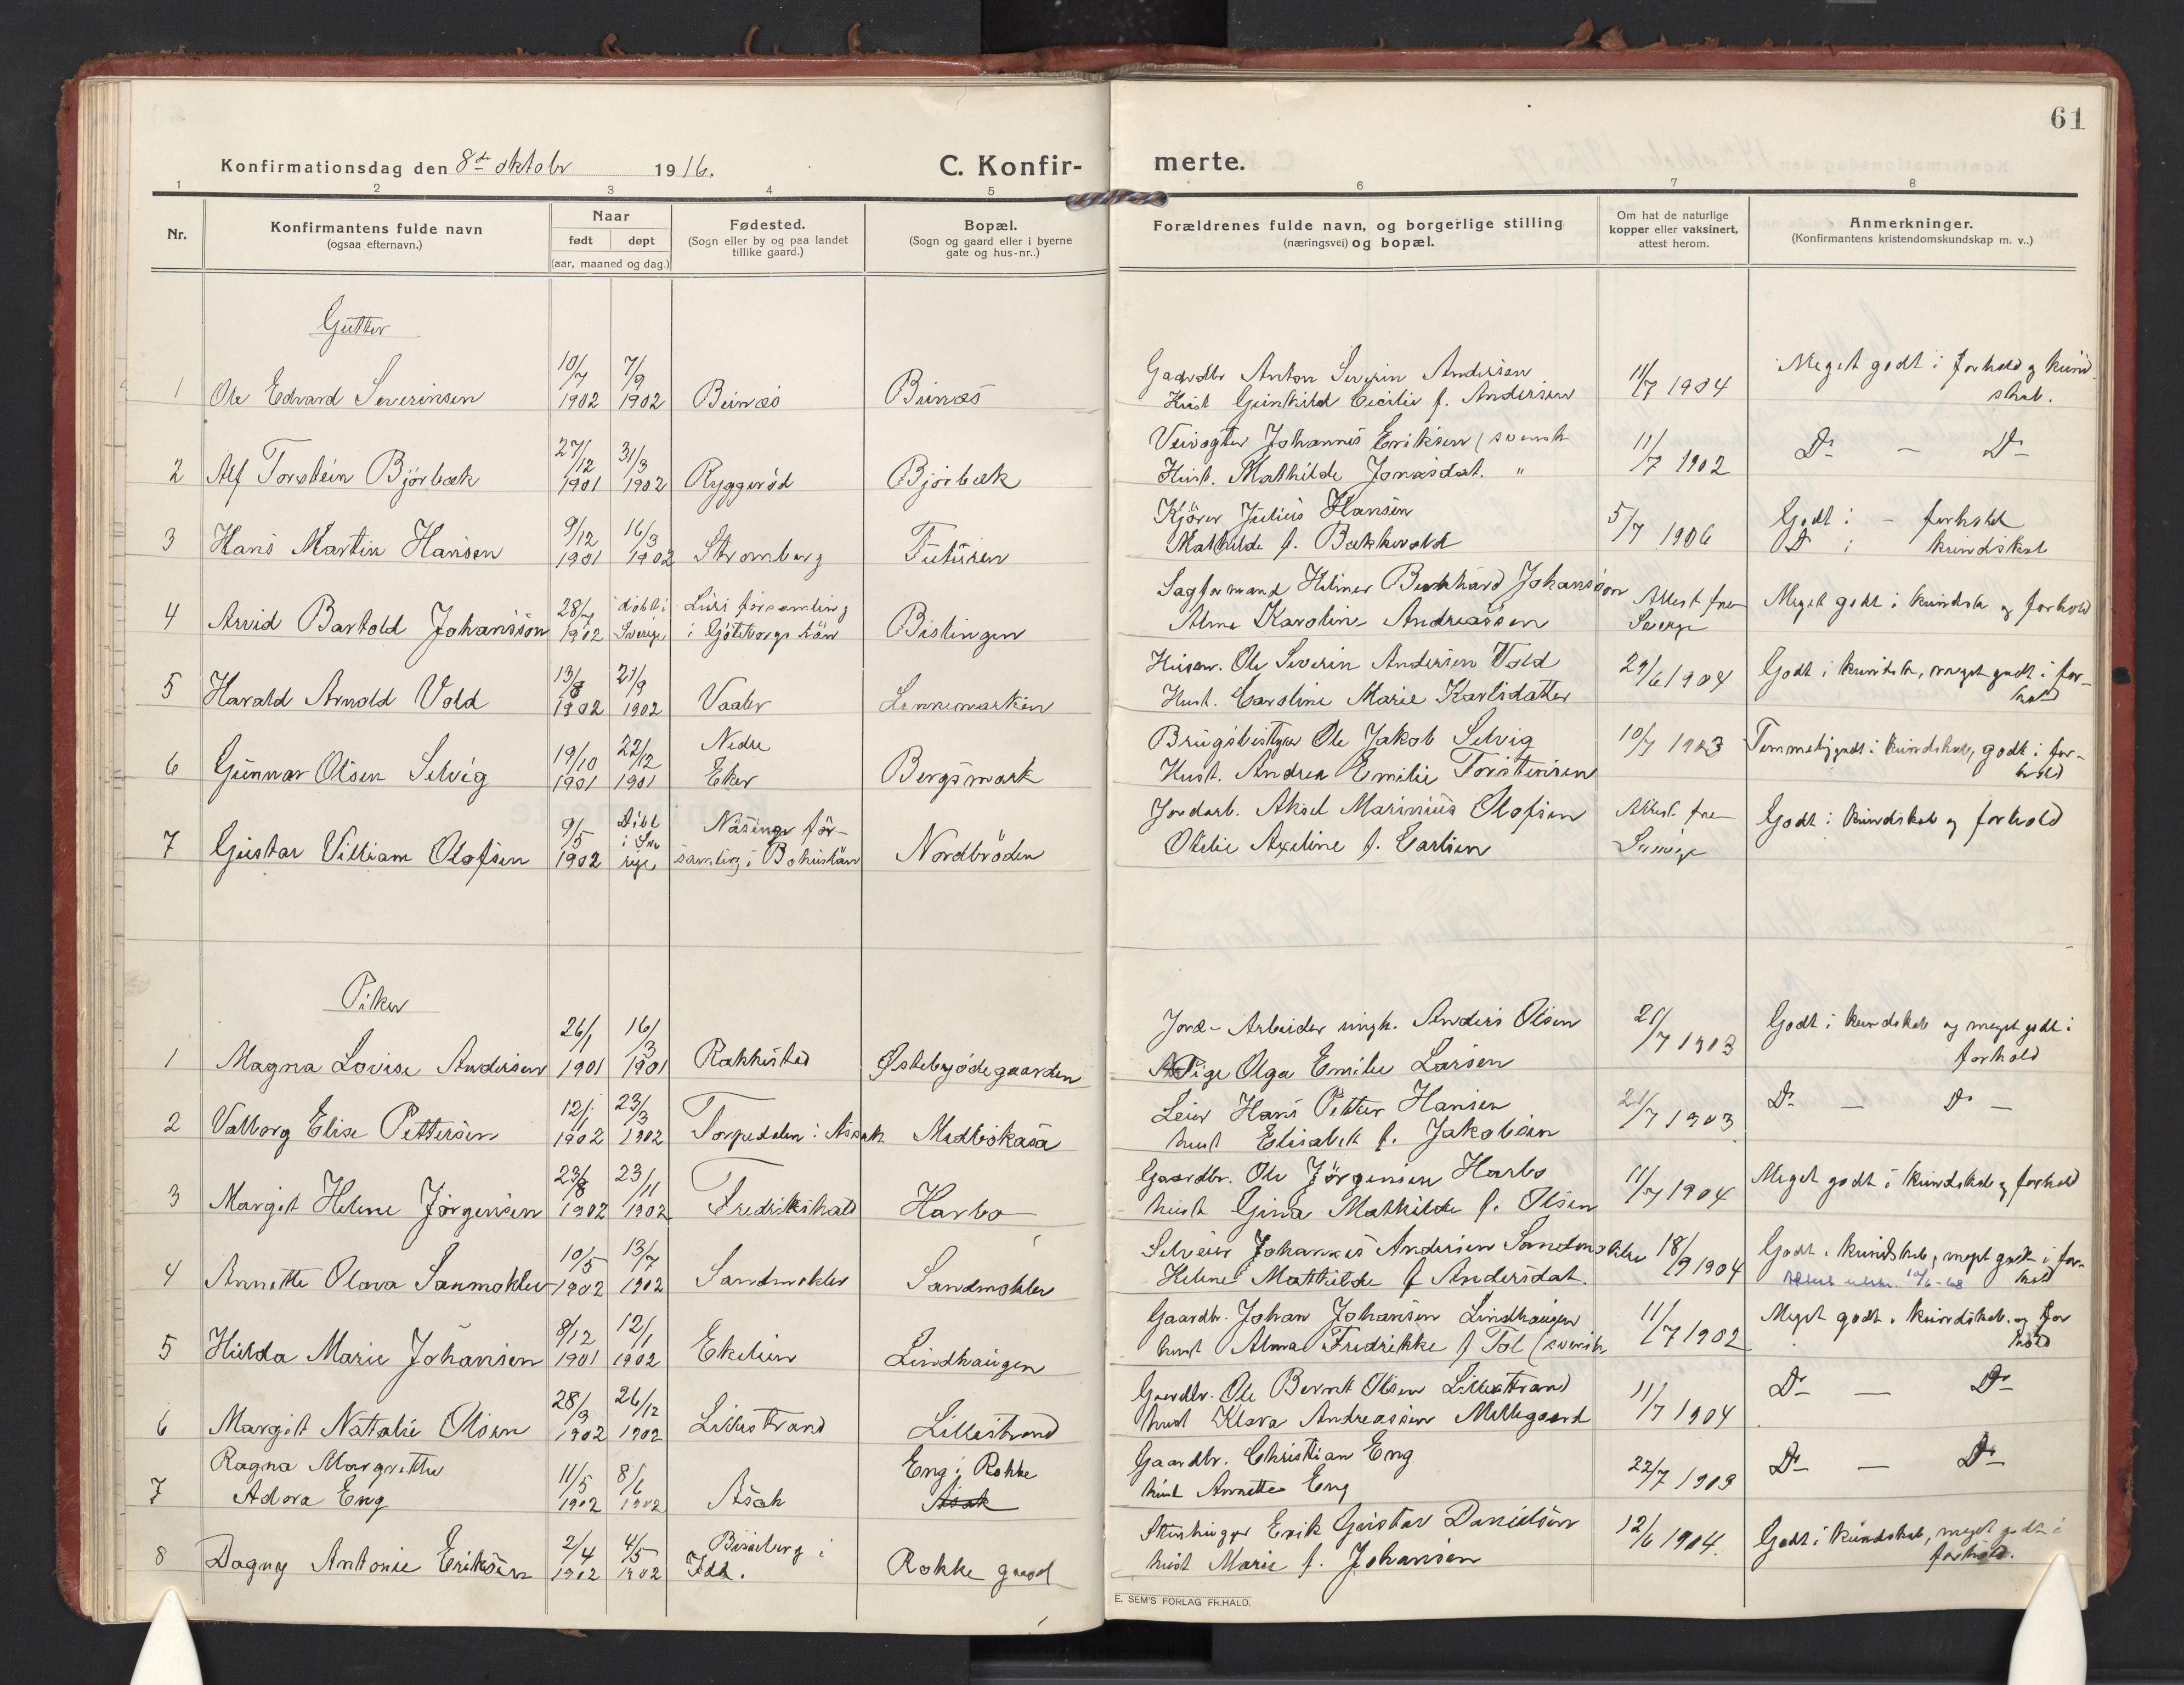 61
Konfirmationsdag den 8de oktobr 1916.
C. Konfir-
merte.
1 2 3 4 5 6 7 8
Nr.
Konfirmantens fulde navn
(ogsaa efternavn.)
Naar
født døpt
(aar, maaned og dag.)
Fødested.
(Sogn eller by og paa landet
tillike gaard.)
Bopæl.
(Sogn og gaard eller i byerne
gate og hus-nr..)
Forældrenes fulde navn, og borgerlige stilling
(næringsvei) og bopæl.
Om hat de naturlige
kopper eller vaksinert,
attest herom.
Anmerkninger.
(Konfirmantens kristendomskundskap m. v..)
Gutter
10/7 7/9 Gaardbr Anton Severin Andersen Meget godt i forhold og kund
1 Ole Edvard Severinsen 1902 1902 Bunæs Bunæs Hust Gunhild Cecilie f. Andersen 11/7 1904 skab.
27/12 31/3 Veivogter Johannes Eriksen (svensk
2 Alf Torstein Bjørbæk 1901 1902 Ryggerød Bjørbæk Hust. Mathilde Jonasdat. " 11/7 1902 Do - Do
9/12 16/3 Kjører Julius Hansen Godt i - forhold
3 Hans Martin Hansen 1901 1902 Stromberg Futuren Mathilde f. Bækkevold 5/7 1906 Do i kundskab
28/2 döbt i Lurs församling Sagformand Hilmer Bernhard Johansson Attest fra
4 Arvid Bartold Johansson 1902 Sverige i Gøteborgs län Bislingen Alma Karoline Andreassen Sverge Meget godt i kundsk og forhold
13/8 21/9 Husm. Ole Severin Andersen Vold Godt i kundsk, meget godt i for-
5 Harald Arnold Vold 1902 1902 Vaaler Linnemarken Hust. Caroline Marie Karlsdatter 29/6 1904 hold
19/10 22/12 Nedre Brugsbestyrer Ole Jakob Selvig Temmelig godt i kundskab, godt i for-
6 Gunnar Olsen Selvig 1901 1901 Eker Bergsmark Hust. Andrea Emilie Torstensen 10/7 1903 hold
9/5 Döbt i Sve Näsinge för- Jordarb. Aksel Marinius Olofsen Attest fra
7 Gustav Villiam Olofsen 1902 rige samling i Bohuslän Nordbröden Otilie Axeline f. Carlsen Sverige Godt i kundskab og forhold
Piker
26/1 16/3 Jord-Arbeider ungk. Anders Olsen Godt i kundskab og meget godt i
1 Magna Lovise Andersen 1901 1901 Rakkestad Østebyødegaarden Pige Olga Emilie Larsen 21/7 1903 forhold
12/1 23/3 Leier Hans Petter Hansen
2 Valborg Elise Pettersen 1902 1902 Torpedalen i Asak Medbøkasa hust Elisabet f. Jakobsen 21/7 1903 Do - Do -
23/8 23/11 Gaardbr. Ole Jörgensen Harbo
3 Margit Helene Jörgensen 1902 1902 Fredrikshald Harbo hust Gina Mathilde f. Olsen 11/7 1904 Meget godt i kundskab og forhold
10/5 13/7 Selveier Johannes Andersen Sandmokler Godt i kundskab, meget godt i for-
4 Annette Olava Sanmokler 1902 1902 Sandmokler Sandmokler Helene Mathilde f Andersdat. 18/9 1904 Attest utstr. 10/6-68 hold
8/12 12/1 Gaardbr. Johan Johansen Lindhaugen Meget godt i kundskab og for
5 Hilda Marie Johansen 1901 1902 Ekelien Lindhaugen hust Alma Fredrikke f Tol (svensk 11/7 1902 hold
28/9 26/12 Gaardbr. Ole Bernt Olsen Lillestrand
6 Margit Natalie Olsen 1902 1902 Lillestrand Lillestrand hust Klara Andreassen Mellegaard 11/7 1904 Do - Do
Ragna Margrethe 11/5 8/6 Eng i Rokke Gaardbr. Christian Eng
7 Adora Eng 1902 1902 Asak Asak hust Annette Eng 22/7 1903 Do - Do
2/4 4/5 Bisseberg i Stenhugger Erik Gustav Danielsen Godt i kundskab, meget godt i
8 Dagny Antonie Eriksen 1902 1902 Idd. Rokke gaard hust Marie f. Johansen 12/6 1904. forhold.
E. SEM'S FORLAG FR.HALD.